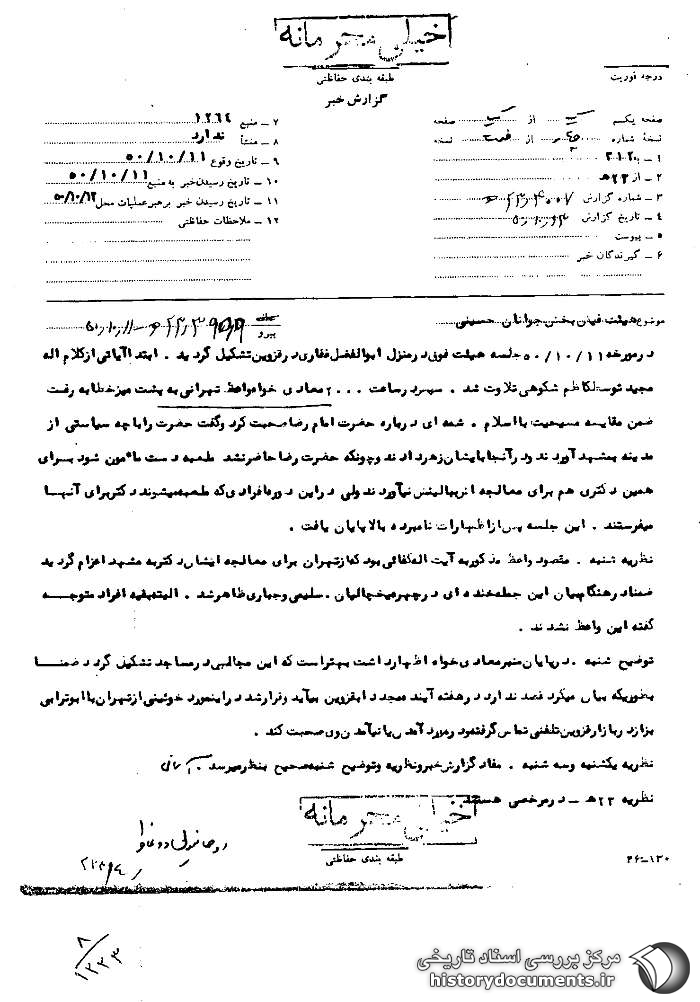 خیلی محرمانه
طبقه بندی حفاظتی
درجه فوریت
گزارش خبر
صفحه یکم از صفحه
نسخهٔ شماره از نسخه
۱ ـ به ۳۱۲
۲ ـ از ۲۲هـ
۳ ـ شماره گزارش
۴ ـ تاریخ گزارش
۵ ـ پیوست
۶ ـ گیرندگان خبر
۷ ـ منبع ۱۲۶۴
۸ ـ منشأ ندارد
۹ ـ تاریخ وقوع ۵۰/۱۰/۱۱
۱۰ ـ تاریخ رسیدن خبر به منبع ۵۰/۱۰/۱۱
۱۱ ـ تاریخ رسیدن خبر برهبر عملیات محل ۵۰/۱۰/۱۲
۱۲ ـ ملاحظات حفاظتی
موضوع هیئت فیان بخش جوانان حسینی
پیرو
درمورخه ۵۰/۱۰/۱۱ جلسه هیئت فوق درمنزل ابوالفضل غفاری درقزوین تشکیل گردید . ابتدا آیاتی ازکلام اله
مجید توسط کاظم شکوهی تلاوت شد . سپس درساعت ۲۰۰۰ معادی خواه واعظ تهرانی به پشت میز خطابه رفت
ضمن مقایسه مسیحیت بااسلام . شمه ای درباره حضرت امام رضا صحبت کرد وگفت حضرت را باچه سیاستی از
مدینه بمشهد آوردند ودر آنجا بایشان زهر دادند وچونکه حضرت رضا حاضر نشد طعمه دست مأمون شود برای
همین دکتری هم برای معالجه ازببالینش نیآوردند ولی در این دوره افرادی که طعمه میشوند دکتر برای آنها
میفرستند . این جلسه پس ازاظهارات نامبرده بالا پایان یافت .
نظریه شنبه . مقصود واعظ مذکور به آیت اله کفائی بود که ازتهران برای معالجه ایشان دکتر به مشهد اعزام گردید
ضمنا درهنگام بیان این جمله خنده ای در چهره میخچالیان . سلیمی وجباری ظاهر شد . البته بقیه افراد متوجه
گفته این واعظ نشدند .
توضیح شنبه . درپایان منبر معادی خواه اظهار داشت بهتر است که این مجالس درمساجد تشکیل گردد ضمنا
بطوریکه بیان میکرد قصد ندارد در هفته آینده مجددا بقزوین بیآید وقرار شد در اینمورد خوئینی ازتهران با ابوترابی
بزاز در بازار قزوین تلفنی تماس گرفته ودر مورد آمدن یا نیآمدن وی صحبت کند .
نظریه یکشنبه وسه شنبه . مفاد گزارش خبر ونظریه وتوضیح شنبه صحیح بنظر میرسد .
نظریه ۲۲هـ ـ درمرخصی هستند
خیلی محرمانه
طبقه بندی حفاظتی
۴۶-۱۳۰
۸
۱۲۳۳
مرکز بررسی اسناد تاریخی
historydocuments.ir